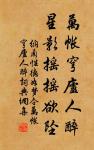 萬帳穹廬人醉
星影搖搖欲墜
納蘭性德如夢令萬帳
穹廬人醉詞典網集